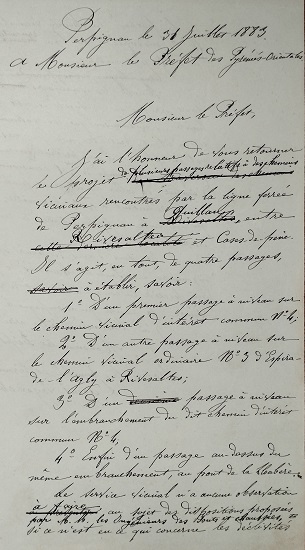 Perpignan le 31 Juillet 1883.
A Monsieur le Préfet des Pyrénées-Orientales
Monsieur le Préfet,
J'ai l'honneur de vous retourner
le projet de plusieurs passages relatifs à des chemins
vicinaux rencontrés par la ligne ferrée
de Perpignan à Quillan, entre
Rivesaltes et Cases-de-pène.
Il s'agit, en tout, de quatre passages,
savoir à établir, savoir :
1° D'un premier passage à niveau sur
le chemin vicinal d'intérêt commun N° 4;
2° D'un autre passage à niveau sur
le chemin vicinal ordinaire N° 3 d'Espira-
de-l'agly à Rivesaltes;
3° D'un passage à niveau
sur l'embranchement du dit chemin d'intérêt
commun N° 4,
4° Enfin d'un passage au-dessus du
même embranchement, au pont de la
Le service vicinal n'a aucune observation
à faire au sujet des dispositions proposées
par M.M. les Ingénieurs des Ponts et chaussées,
si ce n'est en ce qui concerne les déclivités